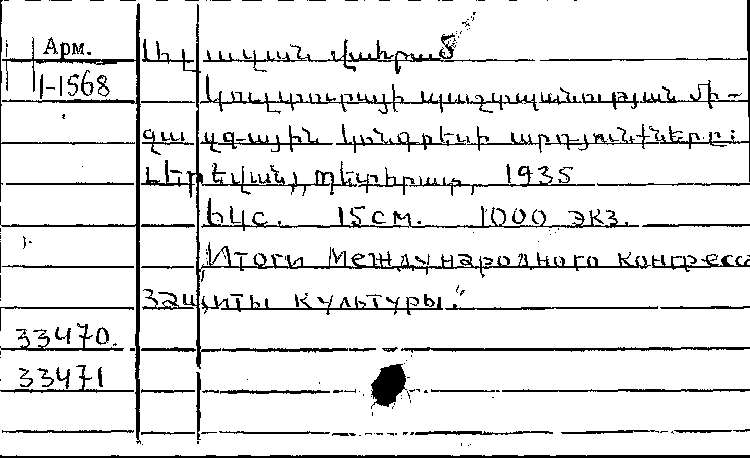 Арм.
1-1568
կուլտուրայի պաշտպանության մի-
ջազգային կոնգրեսի արդյունքները:
Երևան, Պետհրատ, 1935
64с. 15см. 1000 экз.
„Итоги Международного конгресса
защиты культуры."
33470.
33471